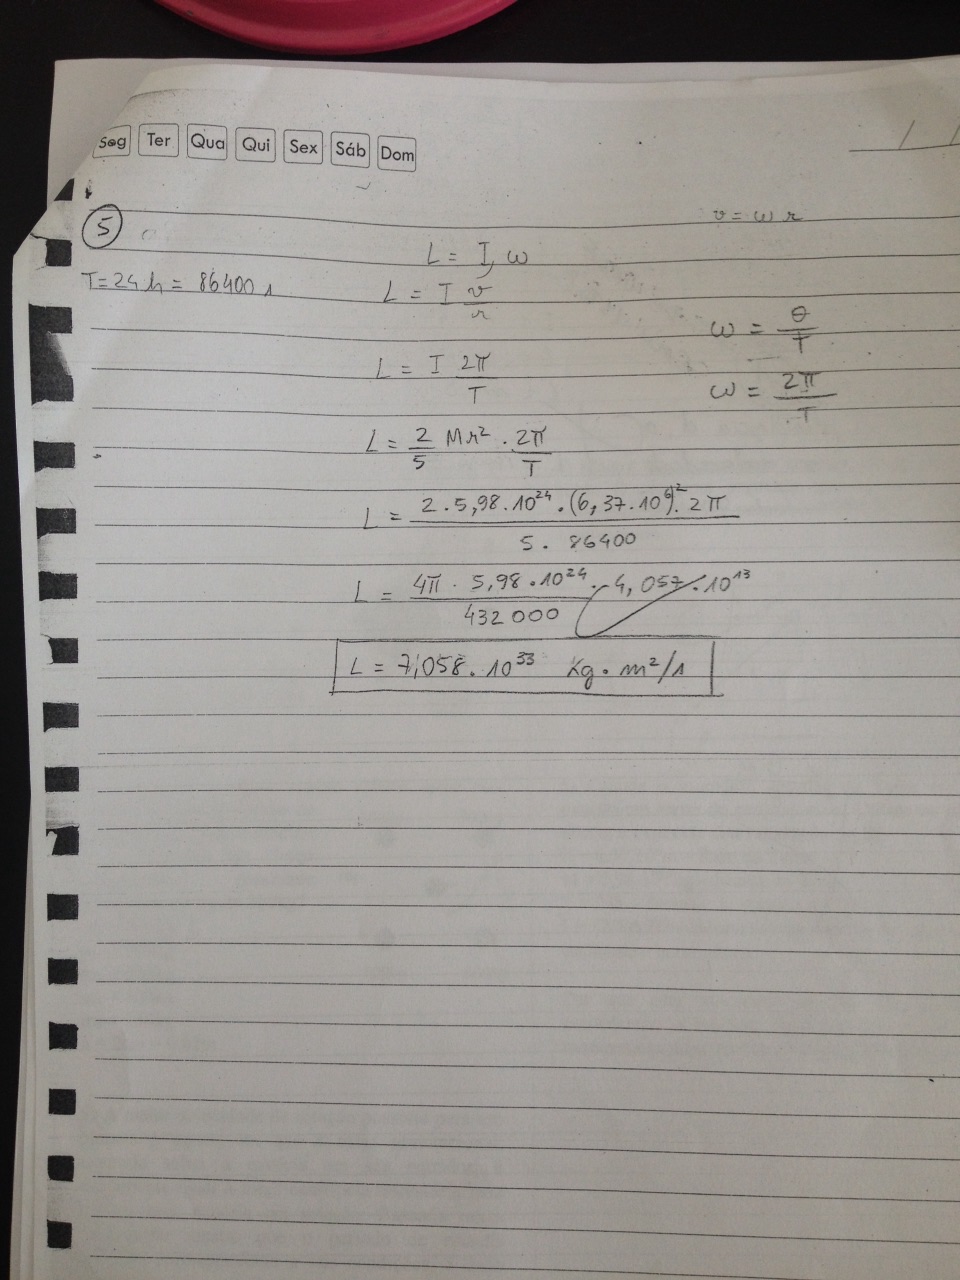 Seg Ter Qua Qui Sex Sáb Dom
/ /
5
v = ω r
L = I, ω
T = 24 h = 86400 s
L = I v/r
ω = θ/T
L = I 2π/T
ω = 2π/T
L = 2/5 Mr² . 2π/T
L = 2 . 5,98 . 10²⁴ . (6,37 . 10⁶)² . 2π / 5 . 86400
L = 4π . 5,98 . 10²⁴ . 4,057 . 10¹³ / 432 000
L = 7,058 . 10³³ Kg . m²/s